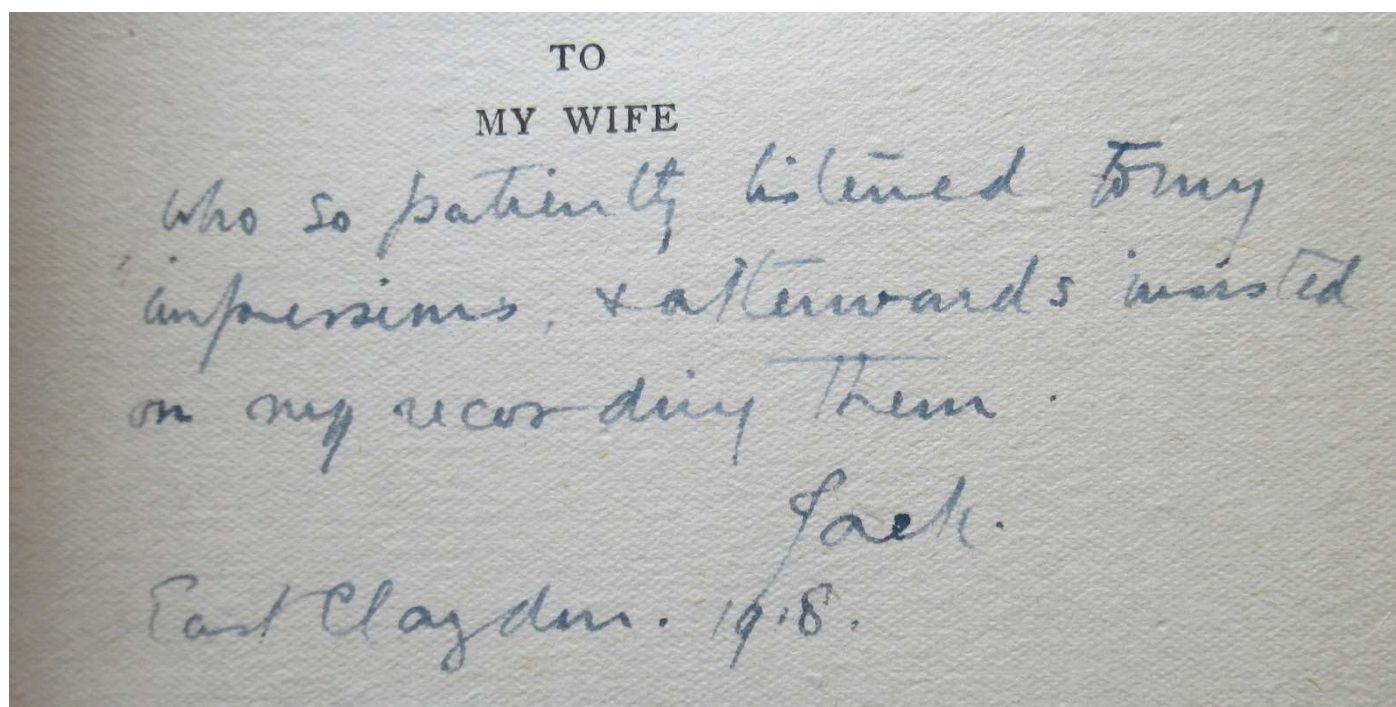 TO
MY WIFE
who so patiently listened to my
impressions, & afterwards insisted
on my recording them.
Jack.
East Claydon. 1918.